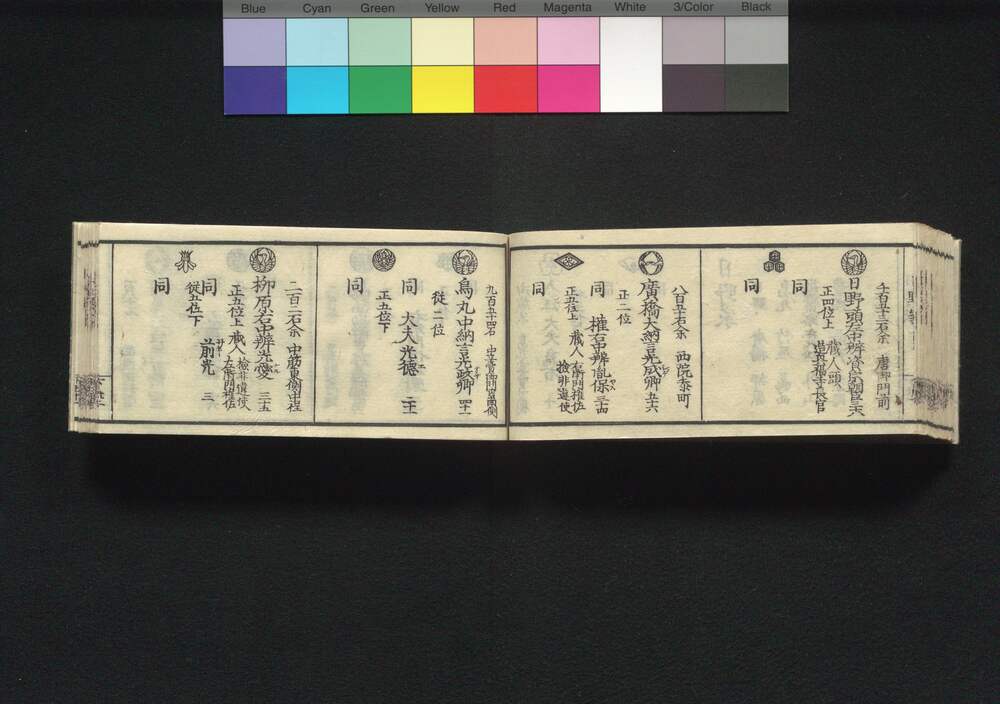 Blue Cyan Green Yellow Red Magenta White 3/Color Black
千百五十三石余 唐御門前
日野頭左中辨資宗朝臣
正四位上 蔵人頭
同
同
八百五十石余 西院参町
廣橋大納言光成卿 五十六
正二位
同 權右中辨胤保 三十四
正五位上 蔵人 左衛門權佐
檢非違使
同
九百五十四石
烏丸中納言光政卿 四十一
従二位
同 大夫光德 二十一
正五位下
同
二百二石余 中筋東側中程
柳原右中辨光愛 三十五
正五位上 蔵人 檢非違使
左衛門權佐
同 前光 三
従五位下
同